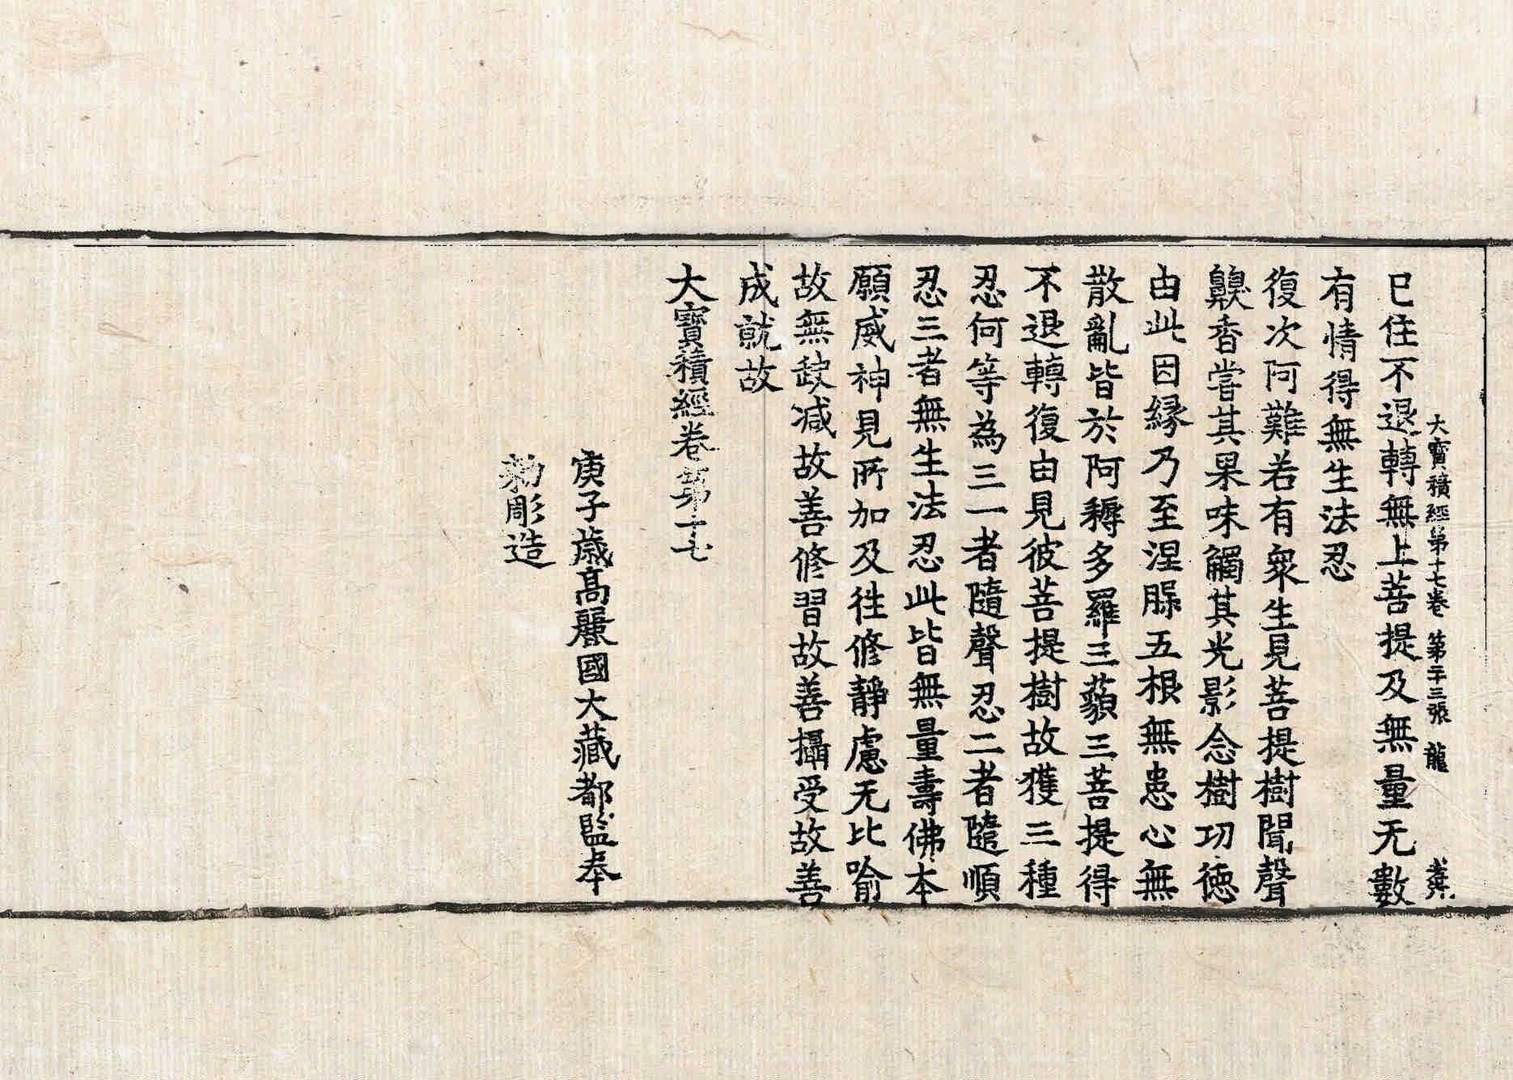 大寶積經第十七卷 第二十三張 龍
已住不退轉無上菩提及無量无數
有情得無生法忍
復次阿難若有衆生見菩提樹聞聲
齅香嘗其果味觸其光影念樹功德
由此因縁乃至涅槃五根無患心無
散亂皆於阿耨多羅三藐三菩提得
不退轉復由見彼菩提樹故獲三種
忍何等為三一者隨聲忍二者隨順
忍三者無生法忍此皆無量壽佛本
願威神見所加及往修靜慮无比喻
故無缺减故善修習故善攝受故善
成就故
大寶積經卷第十七
庚子歲高麗國大藏都監奉
勅彫造